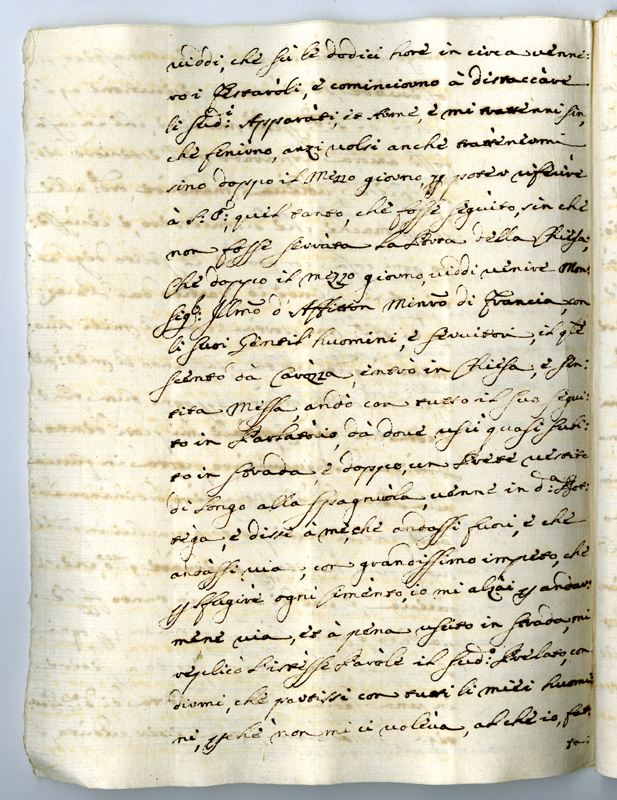 viddi, che sù le dodici hore in circa venne:
ro i Festaroli, e cominciorno à distaccàre
li sud:i Apparàti, et Arme, e mi trattenni sin,
che finirno, anzi volsi anche trattenermi
sino doppo il mezzo giorno, p poter riferire
à S. E:, quel tanto, che fosse seguito, sin che
non fosse serràta la Porta della Chiesa,
Che doppo il mezzo giorno, viddi venire Mon:
sig:r Illmo d' Minrõ di Francia, con
li suoi Gentil'huomini, e servitori, il qle
scento dà Carozza, entrò in Chiesa, e sen:
tita Messa andò con tutto il suo segui:
to in Parlatòrio, dà dove uscì quasi subi:
to in strada, e doppo, un Prete vestito
di longo alla spagniola, venne in d:a Bot:
tega, e disse à me, che andassi fuori, e che
andàssi via, con grandissimo impeto, che
p sfugire ogni simènto, io mi alzài p andar:
mene via, et à pena uscito in strada, mi
replicò l'istèsse Paròle il sud:o Prelato, con
dirmi, che partissi con tutti li mièi huomi
ni, pchè non mi ci volèva, al che io, fat:
ta: